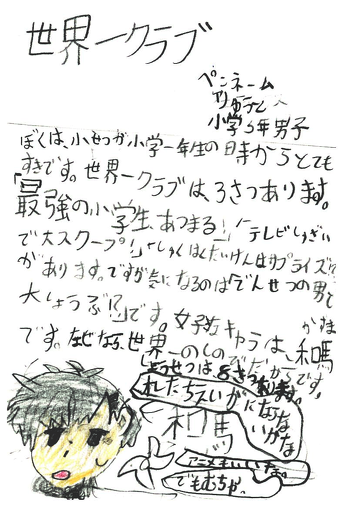 世界一クラブ
ペンネーム
小学5年男子
ぼくは、小せつが小学一年生の時からとても
すきです。世界一クラブは、3さつあります。
「最強の小学生、あつまる!」「テレビしゅざい
で大スクープ!」「しゅくはくたいけんはサプライズ!?」
があります。ですが気になるのは「でんせつの男と
大しょうぶ!?」です。女子な キャラは、和馬
かずま
です。なぜなら、世界一のしのびだからです。
しょうせつは
れたちえいがになな
いかな
和馬
アニメもいいな。
でもむちゃ。